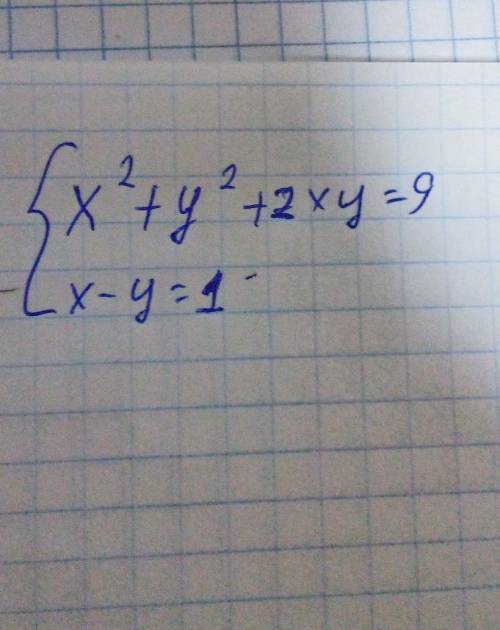 x² + y² + 2xy = 9
x - y = 1